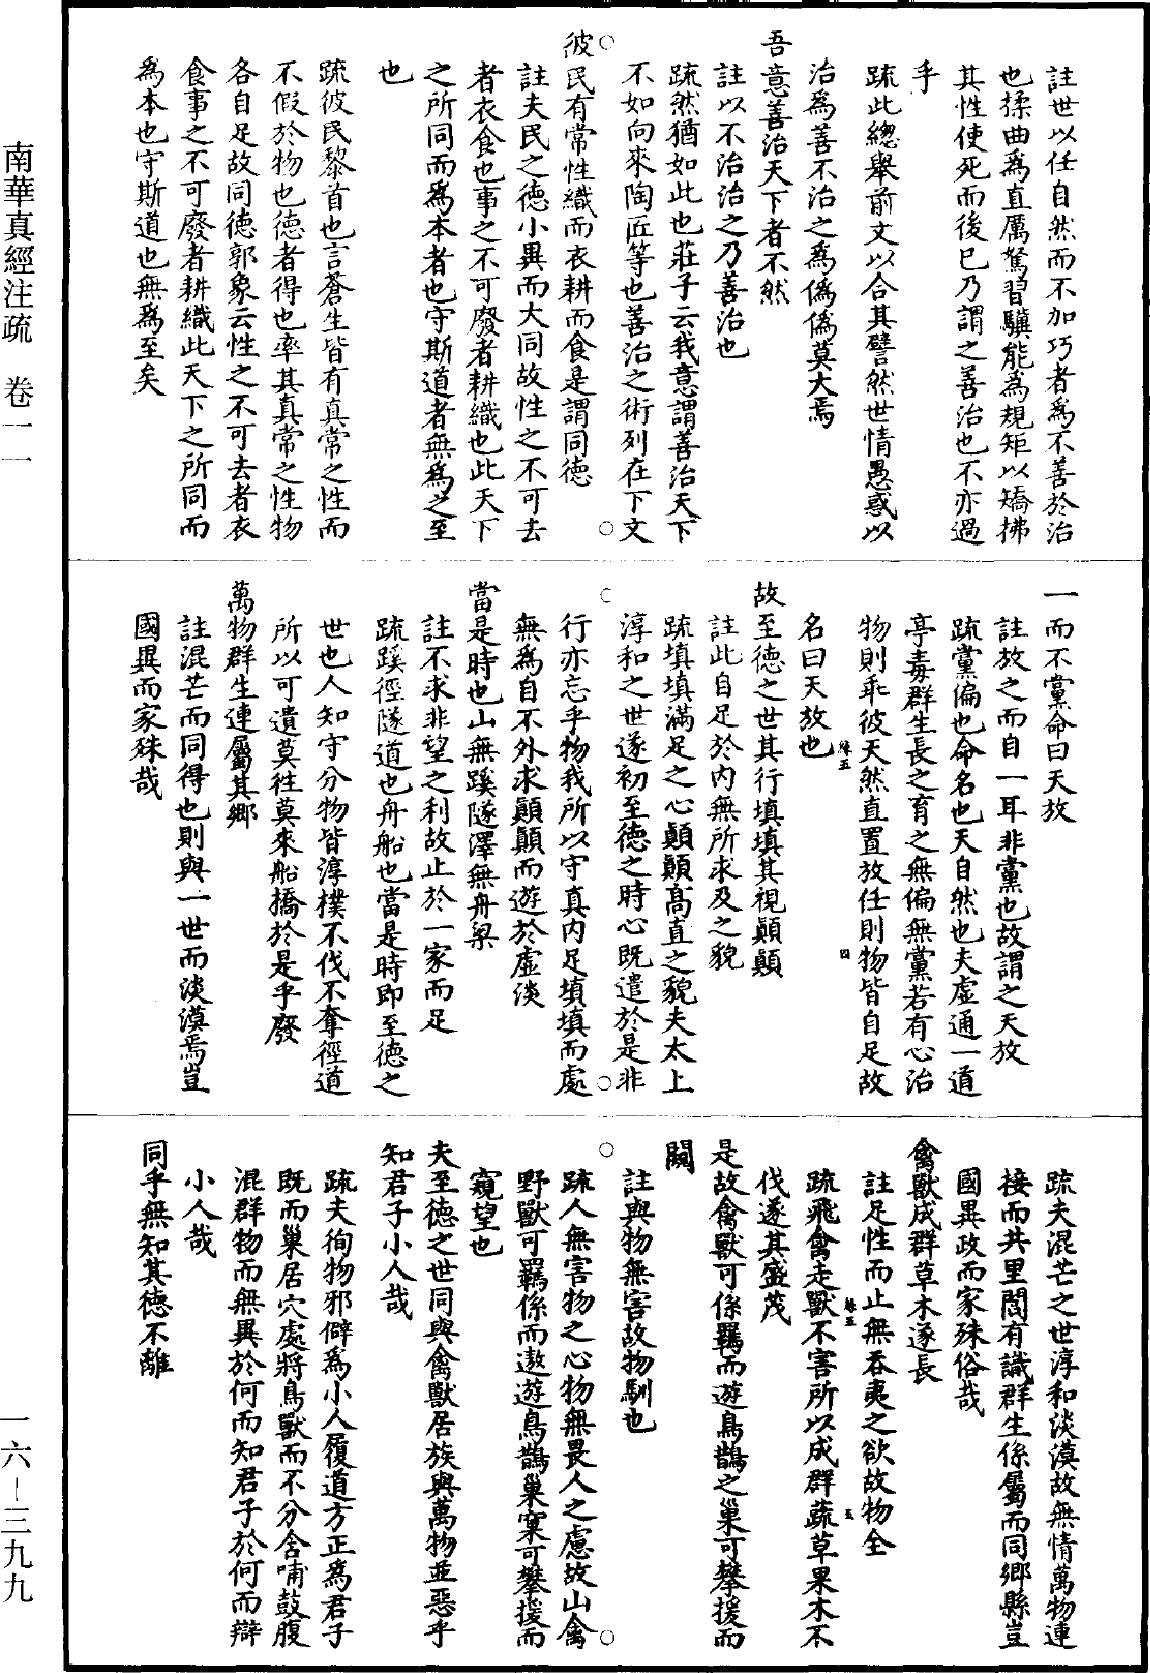 註世以任自然而不加巧者爲不善於治
也揉曲爲直厲駑習驥能爲規矩以矯拂
其性使死而後已乃謂之善治也不亦過
乎
疏此總舉前文以合其譬然世情愚惑以
治爲善不治之爲僞僞莫大焉
吾意善治天下者不然
註以不治治之乃善治也
疏然猶如此也莊子云我意謂善治天下
不如向來陶匠等也善治之術列在下文
彼民有常性織而衣耕而食是謂同德
註夫民之德小異而大同故性之不可去
者衣食也事之不可廢者耕織也此天下
之所同而爲本者也守斯道者無爲之至
也
疏彼民黎首也言蒼生皆有真常之性而
不假於物也德者得也率其真常之性物
各自足故同德郭象云性之不可去者衣
食事之不可廢者耕織此天下之所同而
爲本也守斯道也無爲至矣
一而不黨命曰天放
註放之而自一耳非黨也故謂之天放
疏黨偏也命名也天自然也夫虛通一道
亭毒群生長之育之無偏無黨若有心治
物則乖彼天然直置放任則物皆自足故
名曰天放也
故至德之世其行填填其視顛顛
註此自足於內無所求及之貌
疏填填滿足之心顛顛高直之貌夫太上
淳和之世遂初至德之時心既遣於是非
行亦忘乎物我所以守真內足填填而處
無爲自不外求顛顛而遊於虛淡
當是時也山無蹊隧澤無舟梁
註不求非望之利故止於一家而足
疏蹊徑隧道也舟船也當是時即至德之
世也人知守分物皆淳樸不伐不奪徑道
所以可遺莫往莫來船橋於是乎廢
萬物群生連屬其鄉
註混芒而同得也則與一世而淡漠焉豈
國異而家殊哉
疏夫混芒之世淳和淡漠故無情萬物連
接而共里閭有識群生係屬而同鄉縣豈
國異政而家殊俗哉
禽獸成群草木遂長
註足性而止無吞夷之欲故物全
疏飛禽走獸不害所以成群蔬草果木不
伐遂其盛茂
是故禽獸可係羈而遊鳥鵲之巢可攀援而
闚
註與物無害故物馴也
疏人無害物之心物無畏人之慮故山禽
野獸可羈係而遨遊鳥鵲巢窠可攀援而
窺望也
夫至德之世同與禽獸居族與萬物並惡乎
知君子小人哉
疏夫徇物邪僻爲小人履道方正爲君子
既而巢居穴處將鳥獸而不分含哺鼓腹
混群物而無異於何而知君子於何而辯
小人哉
同乎無知其德不離
南華真經注疏　卷一一
一六—三九九